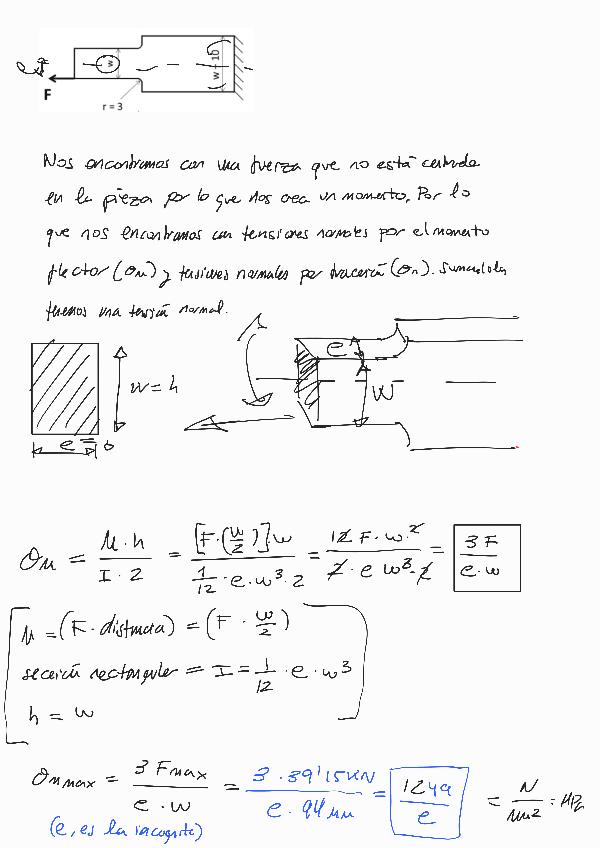 w
w + 10
F
r = 3
Nos encontramos con una fuerza que no está centrada
en la pieza por lo que nos crea un momento. Por lo
que nos encontramos con tensiones normales por el momento
flector (σM) y tensiones normales por tracción (σn). Sumandolas
tenemos una tensión normal.
w = h
e = b
e
W
σM = M·h / I·2 = [F·(w/2)]w / (1/12·e·w³·2) = 12 F·w² / 2·e w³·2 = 3F / e·w
M = (F·distancia) = (F·w/2)
sección rectangular = I = 1/12·e·w³
h = w
σM max = 3 Fmax / e·w = 3·39'15KN / e·94 mm = 1249 / e = N / mm² = MPa
(e, es la incognita)